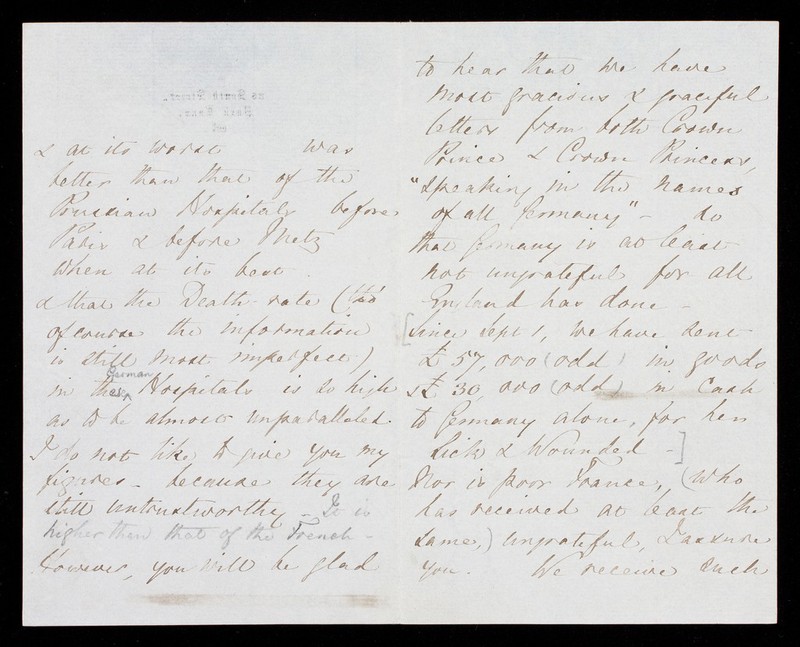 & at its worst was
better than that of the
Prussian Hospitals before
Paris & before Metz
when at its best.
& that the Death-rate (tho'
of course the information
is still most imperfect)
in these German Hospitals is so high
as to be almost unparalleled.
I do not like to give you my
figures - because they are
still untrustworthy - It is
higher than that of the French -
However, you will be glad
to hear that we have
most gracious & graceful
letters from both Crown
Prince & Crown Princess,
"speaking in the names
of all Germany" - so
that Germany is at least
not ungrateful for all
England has done -
[Since Sept 1, we have sent
£57,000 (odd) in goods
& £30,000 (odd) in Cash
to Germany alone, for her
Sick & Wounded -]
Nor is poor France, (who
has received at least the
same,) ungrateful, I assure
you. We receive such